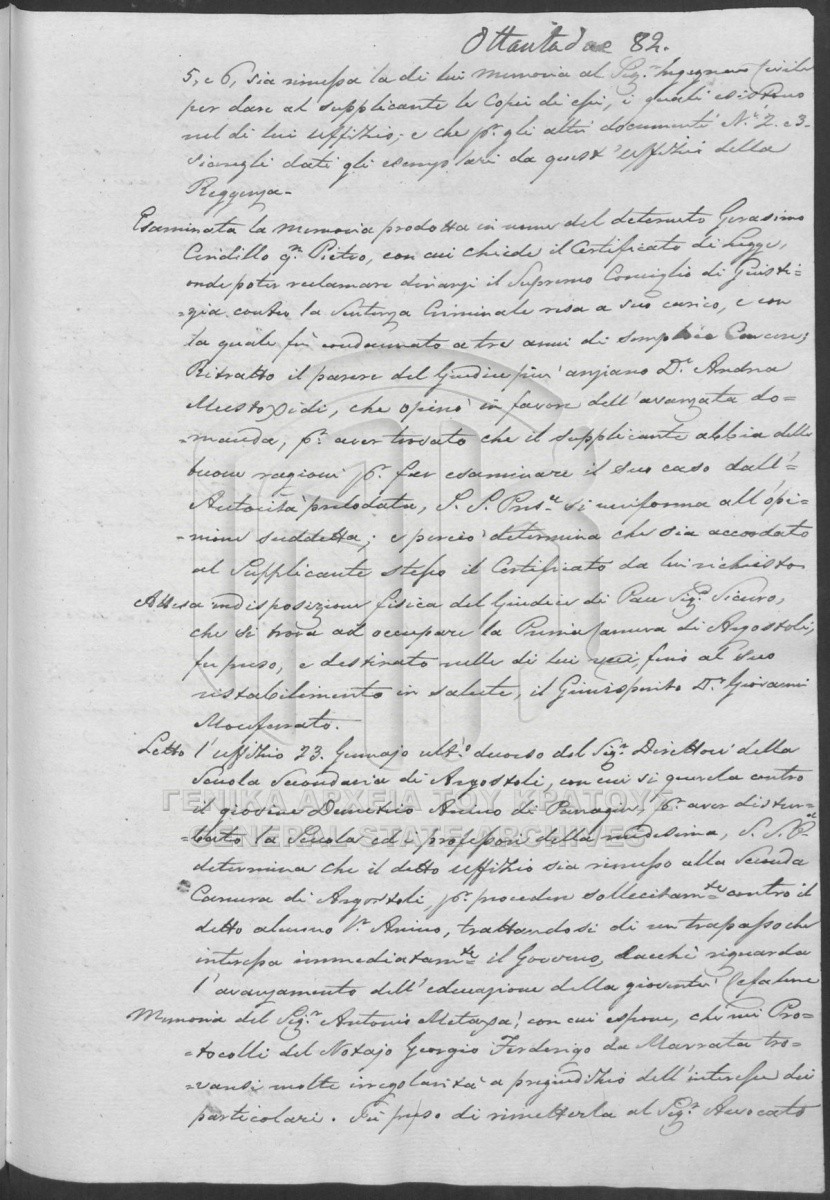 Ottantadue 82.
5, e 6, sia rimessa la di lui Memoria al Sig.r Ingegnere Civile
per dare al supplicante le Copie di essi, i quali esistono
nel di lui Uffizio; e che p.r gli altri documenti N.i 2. e 3.
siangli dati gli esemplari da quest' Uffizio della
Reggenza.
Esaminata la Memoria prodotta in nome del detenuto Gerasimo
Cindillo q.m Pietro, con cui chiede il Certificato di Legge,
onde poter reclamare dinanzi il Supremo Consiglio di Giusti-
=zia contro la Sentenza Criminale resa a suo carico, e con
la quale fù condannato a tre anni di semplice Carcere;
Ritratto il parere del Giudice più anziano D.r Andrea
Mustoxidi, che opinò in favore dell'avanzata do-
=manda, p.r aver trovato che il supplicante abbia delle
buone ragioni p.r far esaminare il suo caso dall'
Autorità prelodata, S. S. Pres.te si uniforma all'opi-
=nione suddetta; e perciò determina che sia accordato
al Supplicante stesso il Certificato da lui richiesto
Attesa indisposizione fisica del Giudice di Pace Sig.r Sicuro,
che si trova ad occupare la Prima Camera di Argostoli,
fu preso, e destinato nelle di lui veci, fino al suo
ristabilimento in salute, il Giurisperito D.r Giovanni
Monferrato.
Letto l'uffizio 23. Gennajo ult.o decorso del Sig.r Direttore della
Scuola Secondaria di Argostoli, con cui si querela contro
il giovine Demetrio Anino di Panagin, p.r aver distur-
=bato la Scuola ed i professori della medesima, S. S. P.
determina che il detto uffizio sia rimesso alla Seconda
Camera di Argostoli, p.r procedere sollecitam.te contro il
detto alunno Anino, trattandosi di un trapasso che
interessa immediatam.te il Governo, dacchè riguarda
l'avanzamento dell'educazione della gioventù Cefalena
Memoria del Sig.r Antonio Metaxà, con cui espone, che nei Pro-
=tocolli del Notajo Georgio Ferderigo da Marrata tro-
=vansi molte irregolarità a pregiudizio dell'interesse dei
particolari. Fù preso di rimetterla al Sig.r Avvocato
ΓΕΝΙΚΑ ΑΡΧΕΙΑ ΤΟΥ ΚΡΑΤΟΥΣ
GENERAL STATE ARCHIVES